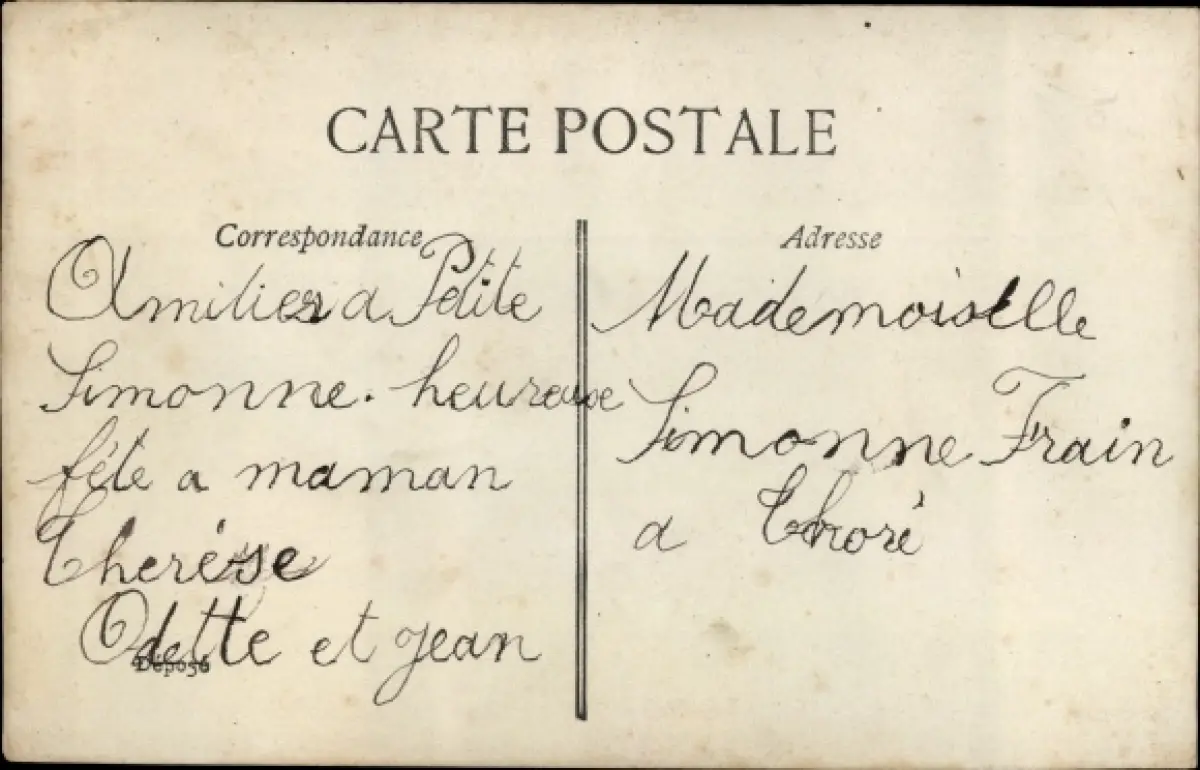 CARTE POSTALE
Correspondance
Amiliers a Petite
Simonne. heureuse
fête a maman
Therése
Odette et jean
Déposé
Adresse
Mademoiselle
Simonne Frain
a Thoré